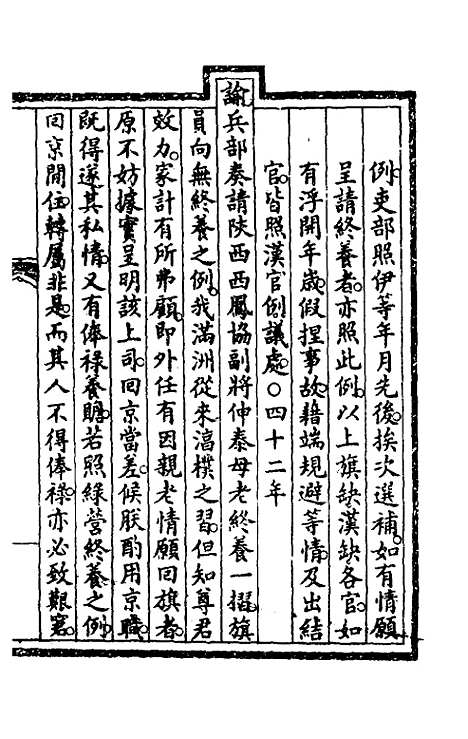 例。吏部照伊等年月先後。挨次選補。如有情願
呈請終養者。亦照此例。以上旗缺漢缺各官。如
有浮開年歲。假捏事故。藉端規避等情。及出結
官。皆照漢官例議處。○四十二年
諭兵部奏請陝西西鳳協副將伸泰母老終養一摺。旗
員向無終養之例。我滿洲從來湻樸之習。但知尊君
效力。家計有所弗顧。即外任有因親老情願回旗者。
原不妨據實呈明該上司。回京當差。候朕酌用京職。
既得遂其私情。又有俸祿養贍。若照綠營終養之例。
回京閒住。轉屬非是。而其人不得俸祿。亦必致艱窘。